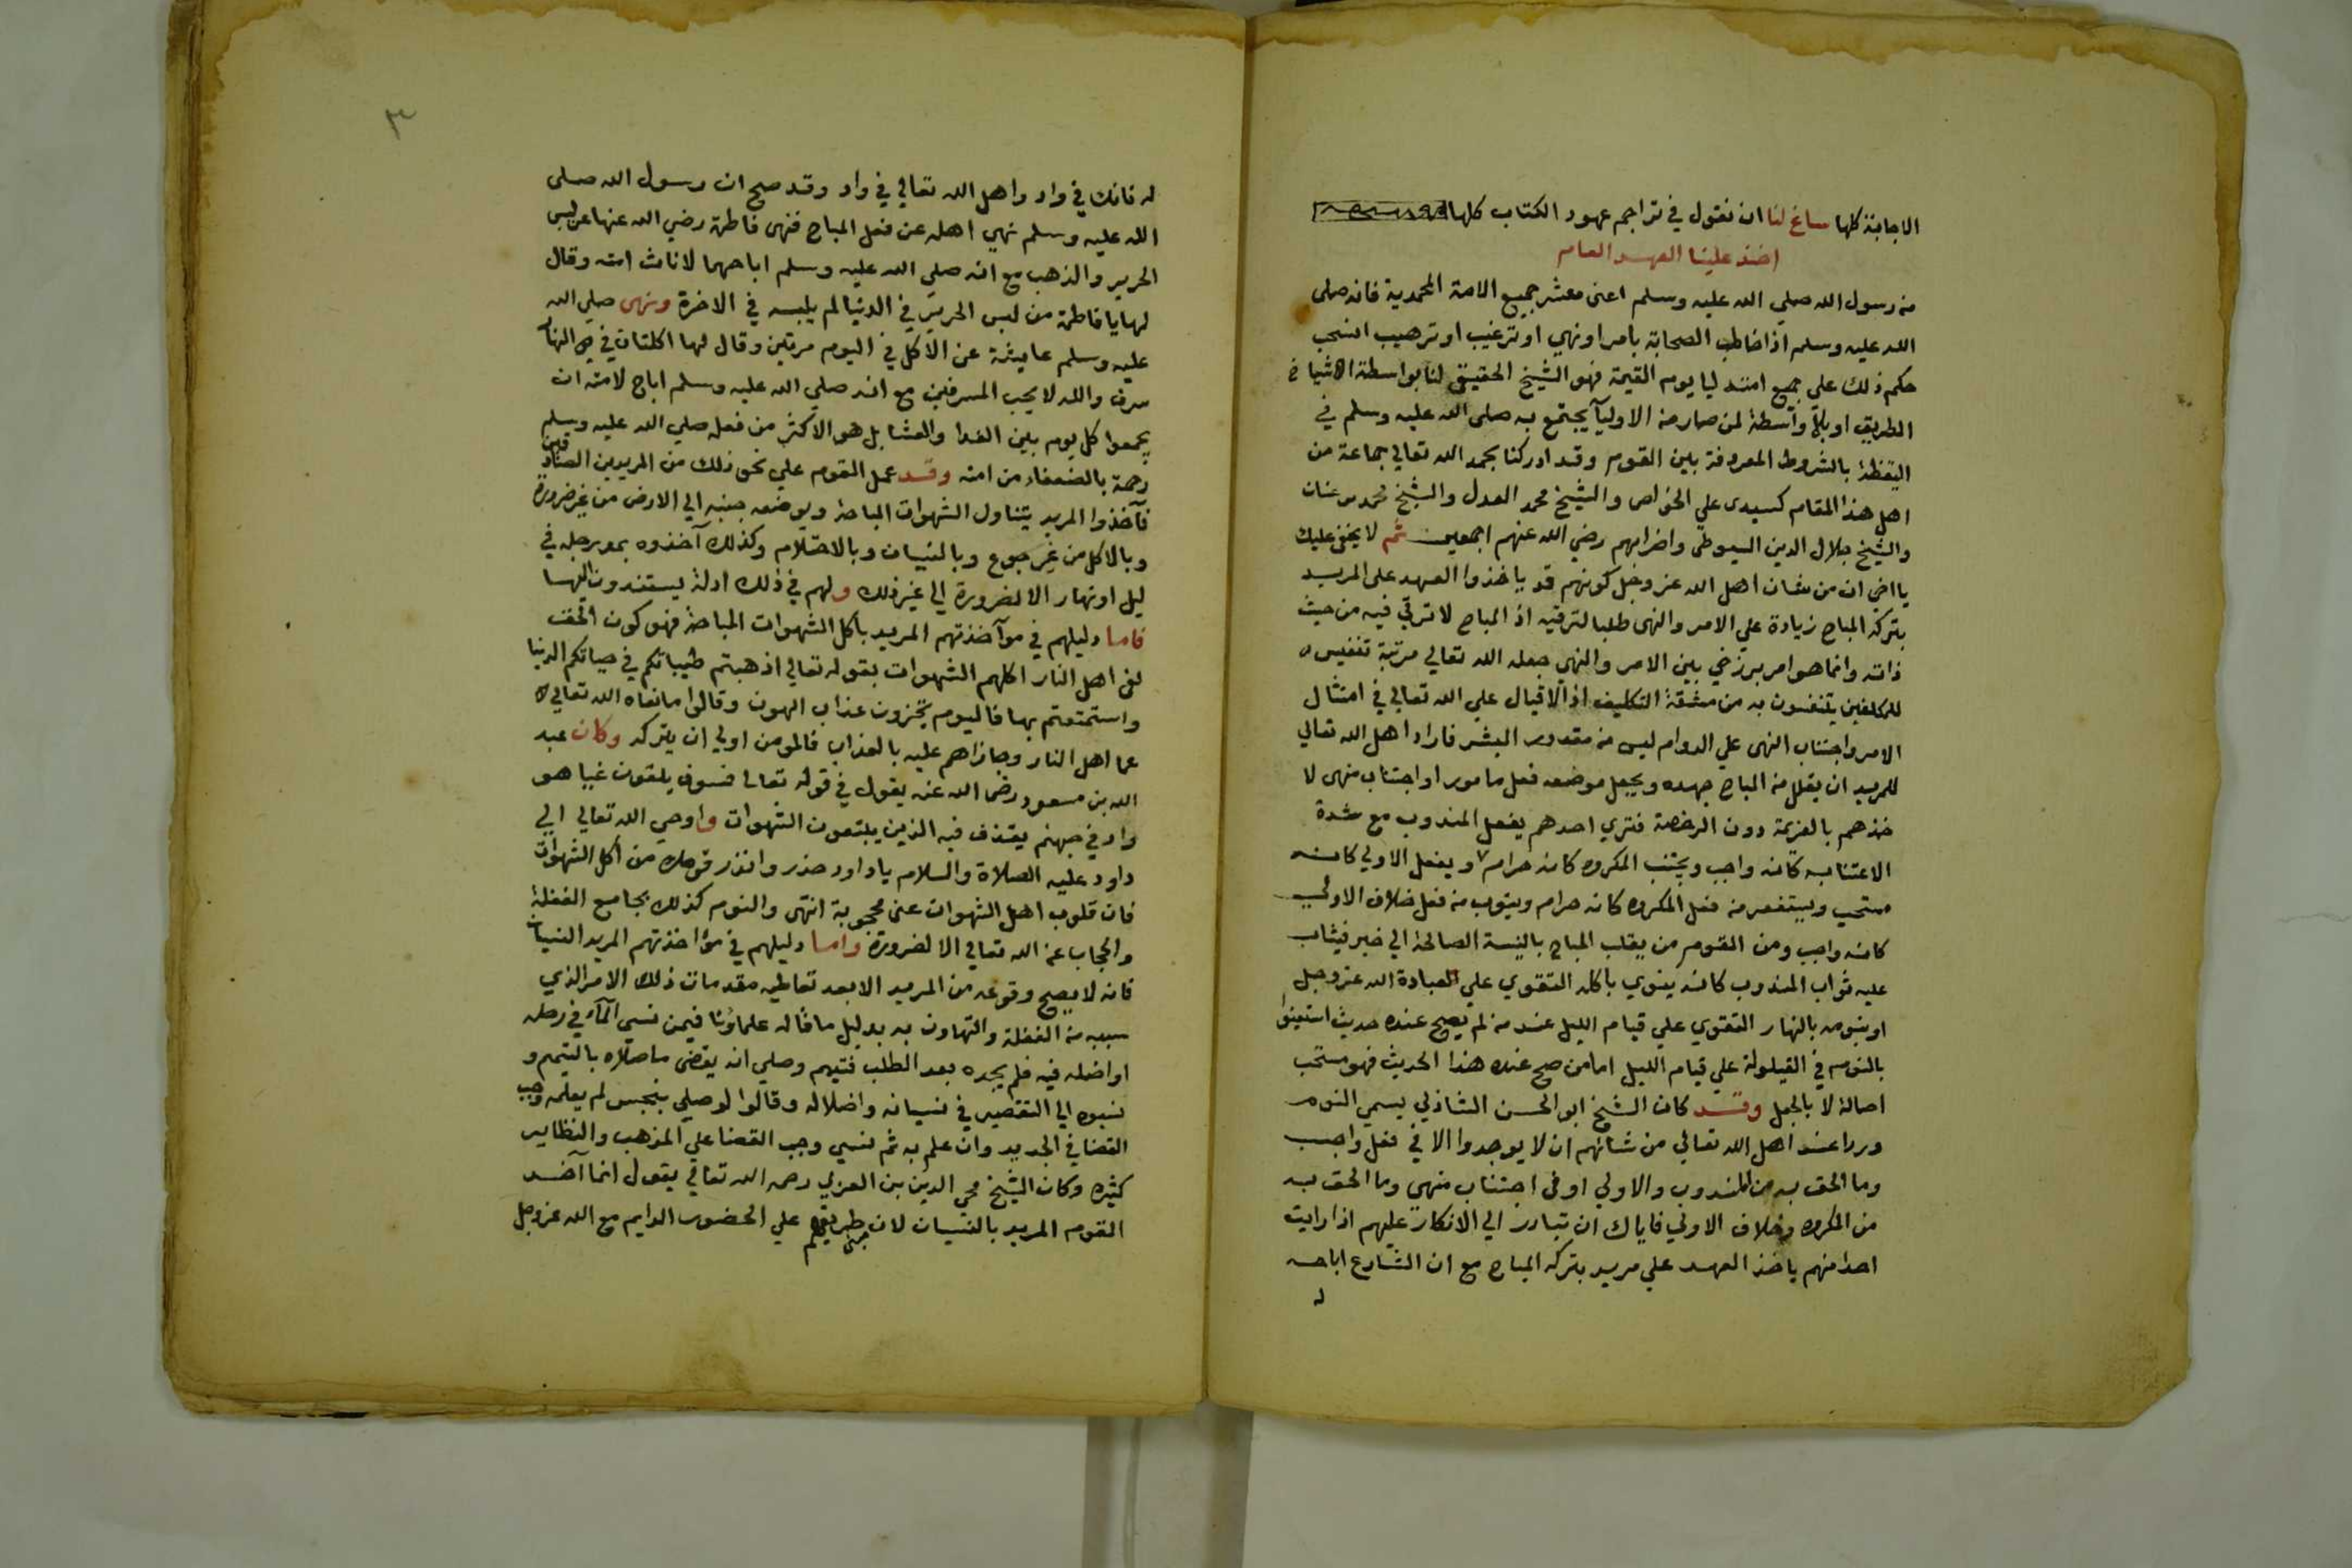 الاجابة كلها ساغ لنا ان نقول في تراجم عهود الكتاب كلها
اخذ علينا العهد العام
من رسول الله صلي الله عليه وسلم اعنى معشر جميع الامة المحمدية فانه صلى
الله عليه وسلم اذا خاطب الصحابة بامر او نهي او ترغيب او ترهيب انسحب
حكم ذلك على جميع امته ليا يوم القيمة فهو الشيخ الحقيقى لنا بواسطة اشياخ
الطريق او بلا واسطة لمن صار من الاوليآ يجتمع به صلى الله عليه وسلم في
اليقظة بالشروط المعروفة بين القوم وقد ادركنا بحمد الله تعالي جماعة من
اهل هذا المقام كسيدى علي الخواص والشيخ محمد العدل والشيخ محمد بن عنان
والشيخ جلال الدين السيوطى واضرابهم رضي الله عنهم اجمعين ثم لا يخفى عليك
يا اخى ان من شان اهل الله عز وجل كونهم قد ياخذوا العهد على المريد
بتركه المباح زيادة علي الامر والنهى طلبا لترقيه اذ المباح لا ترقي فيه من حيث
ذاته وانما هو امر برزخي بين الامر والنهي جعله الله تعالي مرتبة تنفيس
للمكلفين يتنفسون به من مشقة التكليف اذ الاقبال علي الله تعالي في امتثال
الامر واجتناب النهى علي الدوام ليس من مقدور البشر فاراد اهل الله تعالي
للمريد ان يقلل من المباح جهده ويجعل موضعه فعل مامور او اجتناب منهى لا
خذهم بالعزيمة دون الرخصة فتري احدهم يفعل المندوب مع شدة
الاعتنا به كانه واجب ويجتنب المكروه كانه حرام ويفعل الاولي كانه
مستحب ويستغفر من فعل المكروه كانه حرام ويتوب من فعل خلاف الاولي
كانه واجب ومن القوم من يقلب المباح بالنية الصالحة الي خير فيثاب
عليه ثواب المندوب كانه ينوي باكله التقوي علي العبادة الله عز وجل
او بنومه بالنهار التقوي علي قيام الليل عند من لم يصح عنده حديث استعينوا
بالنوم في القيلولة علي قيام الليل اما من صح عنده هذا الحديث فهو مستحب
اصالة لا بالجعل وقد كان الشيخ ابو الحسن الشاذلي يسمي النوم
وردا عند اهل الله تعالي من شانهم ان لا يوجدوا الا في فعل واجب
وما الحق به من المندوب والاولي او في اجتناب منهى وما الحق به
من المكروه وخلاف الاولي فاياك ان تبادر الي الانكار عليهم اذا رايت
احدا منهم ياخذ العهد علي مريد بتركه المباح مع ان الشارع اباحه
له
٣
له فانك في واد واهل الله تعالي في واد وقد صح ان رسول الله صلى
الله عليه وسلم نهي اهله عن فعل المباح فنهى فاطمة رضي الله عنها عن لبس
الحرير والذهب مع انه صلي الله عليه وسلم اباحهما لاناث امته وقال
لها يا فاطمة من لبس الحرير في الدنيا لم يلبسه في الاخرة ونهى صلي الله
عليه وسلم عايشة عن الاكل في اليوم مرتين وقال لها اكلتان في النهار
سرف والله لا يحب المسرفين مع انه صلي الله عليه وسلم اباح لامته ان
يجمعوا كل يوم بين الغدا والعشا بل هو الاكثر من فعله صلي الله عليه وسلم
رحمة بالضعفاء من امته وقد عمل القوم علي نحو ذلك من المريدين الصادقين
فآخذوا المريد بتناول الشهوات المباحة وبوضعه جنبه الي الارض من غير ضرورة
وبالاكل من غير جوع وبالنسيان وبالاحتلام وكذلك آخذوه بمد رجله في
ليل او نهار الا لضرورة الي غير ذلك ولهم في ذلك ادلة يستندون اليها
فاما دليلهم في موآخذتهم المريد باكل الشهوات المباحة فهو كون الحق
نعى اهل النار اكلهم الشهوات بقوله تعالي اذهبتم طيباتكم في حياتكم الدنيا
واستمتعتم بها فاليوم تجزون عذاب الهون وقالوا ما نعاه الله تعالي
عما اهل النار وجازاهم عليه بالعذاب فالمومن اولي ان يتركه وكان عبد
الله بن مسعود رضى الله عنه يقول في قوله تعالي فسوف يلقون غيا هو
واد في جهنم يقذف فيه الذين يبتعون الشهوات واوحي الله تعالي الي
داود عليه الصلاة والسلام يا داود حذر وانذر قومك من اكل الشهوات
فان قلوب اهل الشهوات عنى محجوبة انتهى والنوم كذلك بجامع الغفلة
والحجاب عن الله تعالي الا لضرورة واما دليلهم في مؤاخذتهم المريد النسيان
فانه لا يصح وقوعه من المريد الا بعد تعاطيه مقدمات ذلك الامر الذي
سببه من الغفلة والتهاون به بدليل ما قاله علماؤنا فيمن نسي المآء في رحله
او اضله فيه فلم يجده بعد الطلب فتيمم وصلي انه يقضى ما صلاه بالتيمم و
نسبوه الي التقصير في نسيانه واضلاله وقالوا لو صلي بنجس لم يعلمه وجب
القضا في الجديد وان علم به ثم نسي وجب القضا علي المذهب والنظاير
كثيره وكان الشيخ محي الدين بن العربي رحمه الله تعالي يقول انما آخذ
القوم المريد بالنسيان لان مبنى طريقهم علي الحضور الدايم مع الله عز وجل